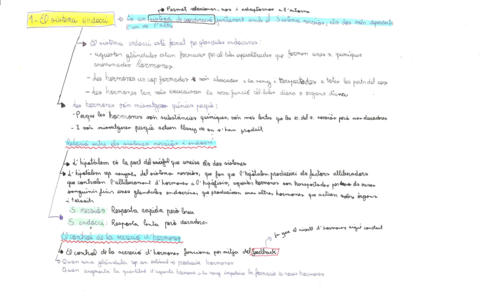 → Permet relacionar-nos i adaptar-nos a l'entorn
1- El sistema endocrí → És un sistema de coordinació juntament amb el sistema nerviós, els dos són
→ El sistema endocrí està format per glàndules endocrines:
- aquestes glàndules estan formades per cèl·lules especialitzades que formen unes substàncies químiques
anomenades hormones
- Les hormones un cop formades són abocades a la sang i transportades a totes les parts del cos
- Les hormones tan sols
→ Les hormones són missatgers químics perquè:
- Perquè les hormones són substàncies químiques, són més lentes que les del s. nerviós però més duradores
- I són missatgers perquè actuen lluny de on s'han produït
Relació entre els sistemes nerviós i endocrí
→ L'hipotàlem és la part del encèfal que uneix els dos sistemes
→ L'hipotàlem rep senyals del sistema nerviós, que fan que l'hipotàlem produeixi els factors alliberadors
que controlen l'alliberament d'hormones a l'hipòfisis, aquestes hormones són transportades
sanguini fins unes glàndules endocrines, que produeixen unes altres hormones que actuen sobre òrgans
i teixits
S. nerviós: Resposta ràpida però breu
S. endocrí: Resposta lenta però duradora
El control de la secreció d'hormones
fa que el nivell d'hormones sigui constant
→ El control de la secreció d'hormones funciona per mitjà del feedback
Quan una glàndula rep un estímul → produeix hormones
Quan augmenta la quantitat d'aquesta hormona a la sang impedeix la formació de noves hormones